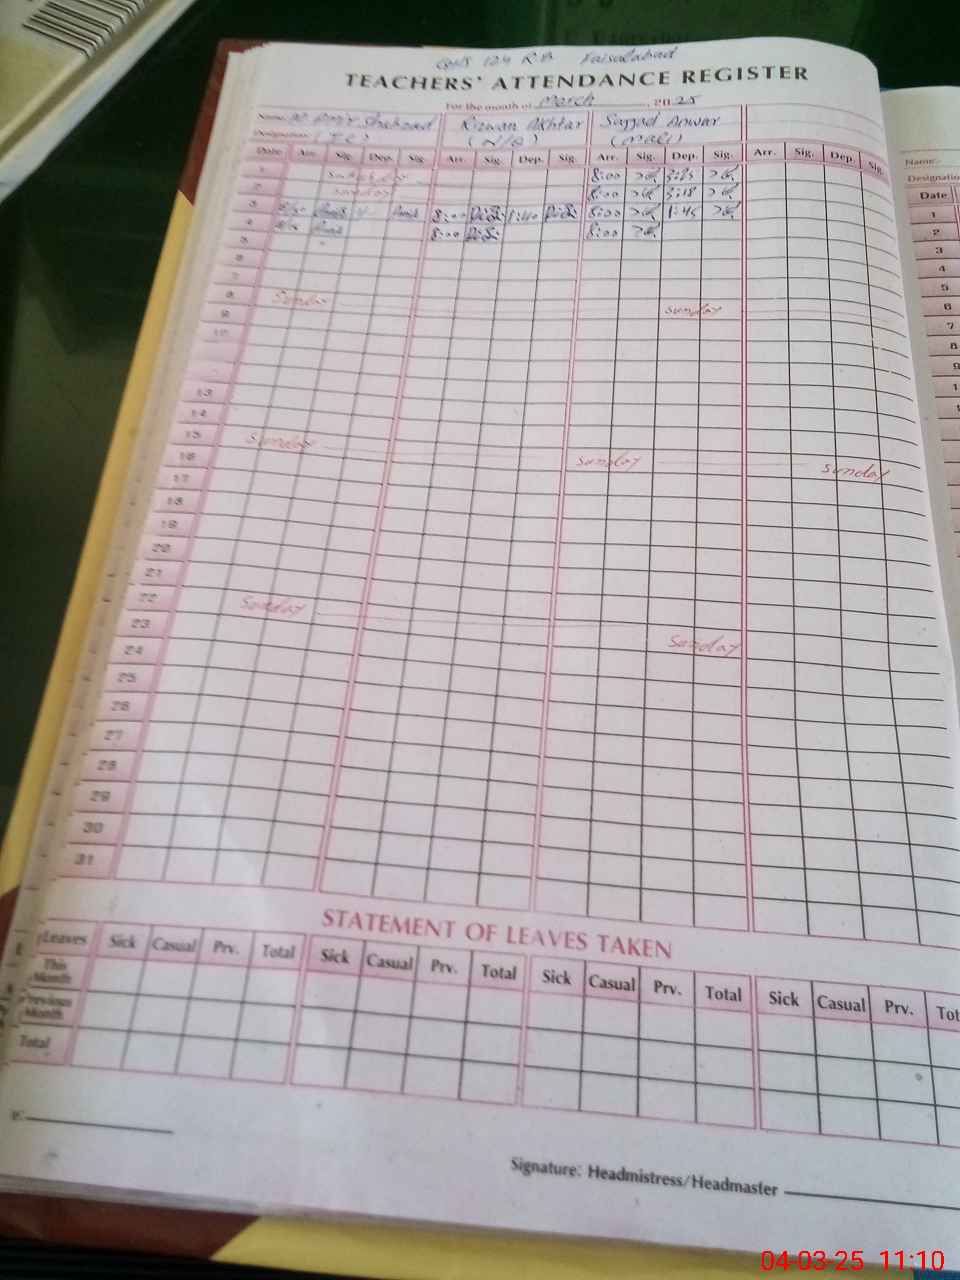 124 R.B Faisalabad
TEACHERS' ATTENDANCE REGISTER
For the month of March, 2025
Name: Shahzad Rizwan Akhtar Sajjad Anwar
Designation: (N/Q) (Mali)
Date Arr. Sig. Dep. Sig. Arr. Sig. Dep. Sig. Arr. Sig. Dep. Sig. Arr. Sig. Dep. Sig.
1 8:00
2 Sunday 8:00 3:18
3 8:00 1:40 8:00 1:45
4 8:00 8:00
5
6
7
8 Sunday
9 Sunday
10
13
14
15 Sunday
16 Sunday Sunday
17
18
19
20
21
22 Sunday
23 Sunday
24
25
26
27
28
29
30
31
STATEMENT OF LEAVES TAKEN
Leaves Sick Casual Prv. Total Sick Casual Prv. Total Sick Casual Prv. Total Sick Casual Prv. Tot
This Month
Previous Month
Total
Signature: Headmistress/Headmaster
Name:-
Designatio
Date
1
2
3
4
5
6
7
8
9
04-03-25 11:10